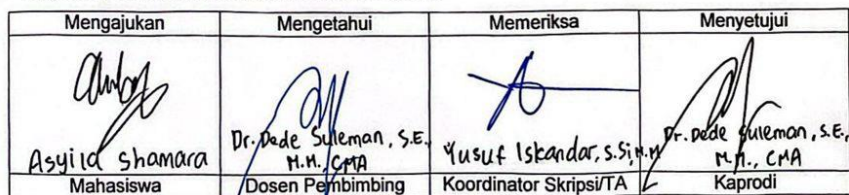 Mengajukan
Mengetahui
Memeriksa
Menyetujui
Asyila Shamara
Dr. Dede Suleman, S.E.,
M.M., CMA
Yusuf Iskandar, S.Si, M.M
Dr. Dede Suleman, S.E.,
M.M., CMA
Mahasiswa
Dosen Pembimbing
Koordinator Skripsi/TA
Kaprodi